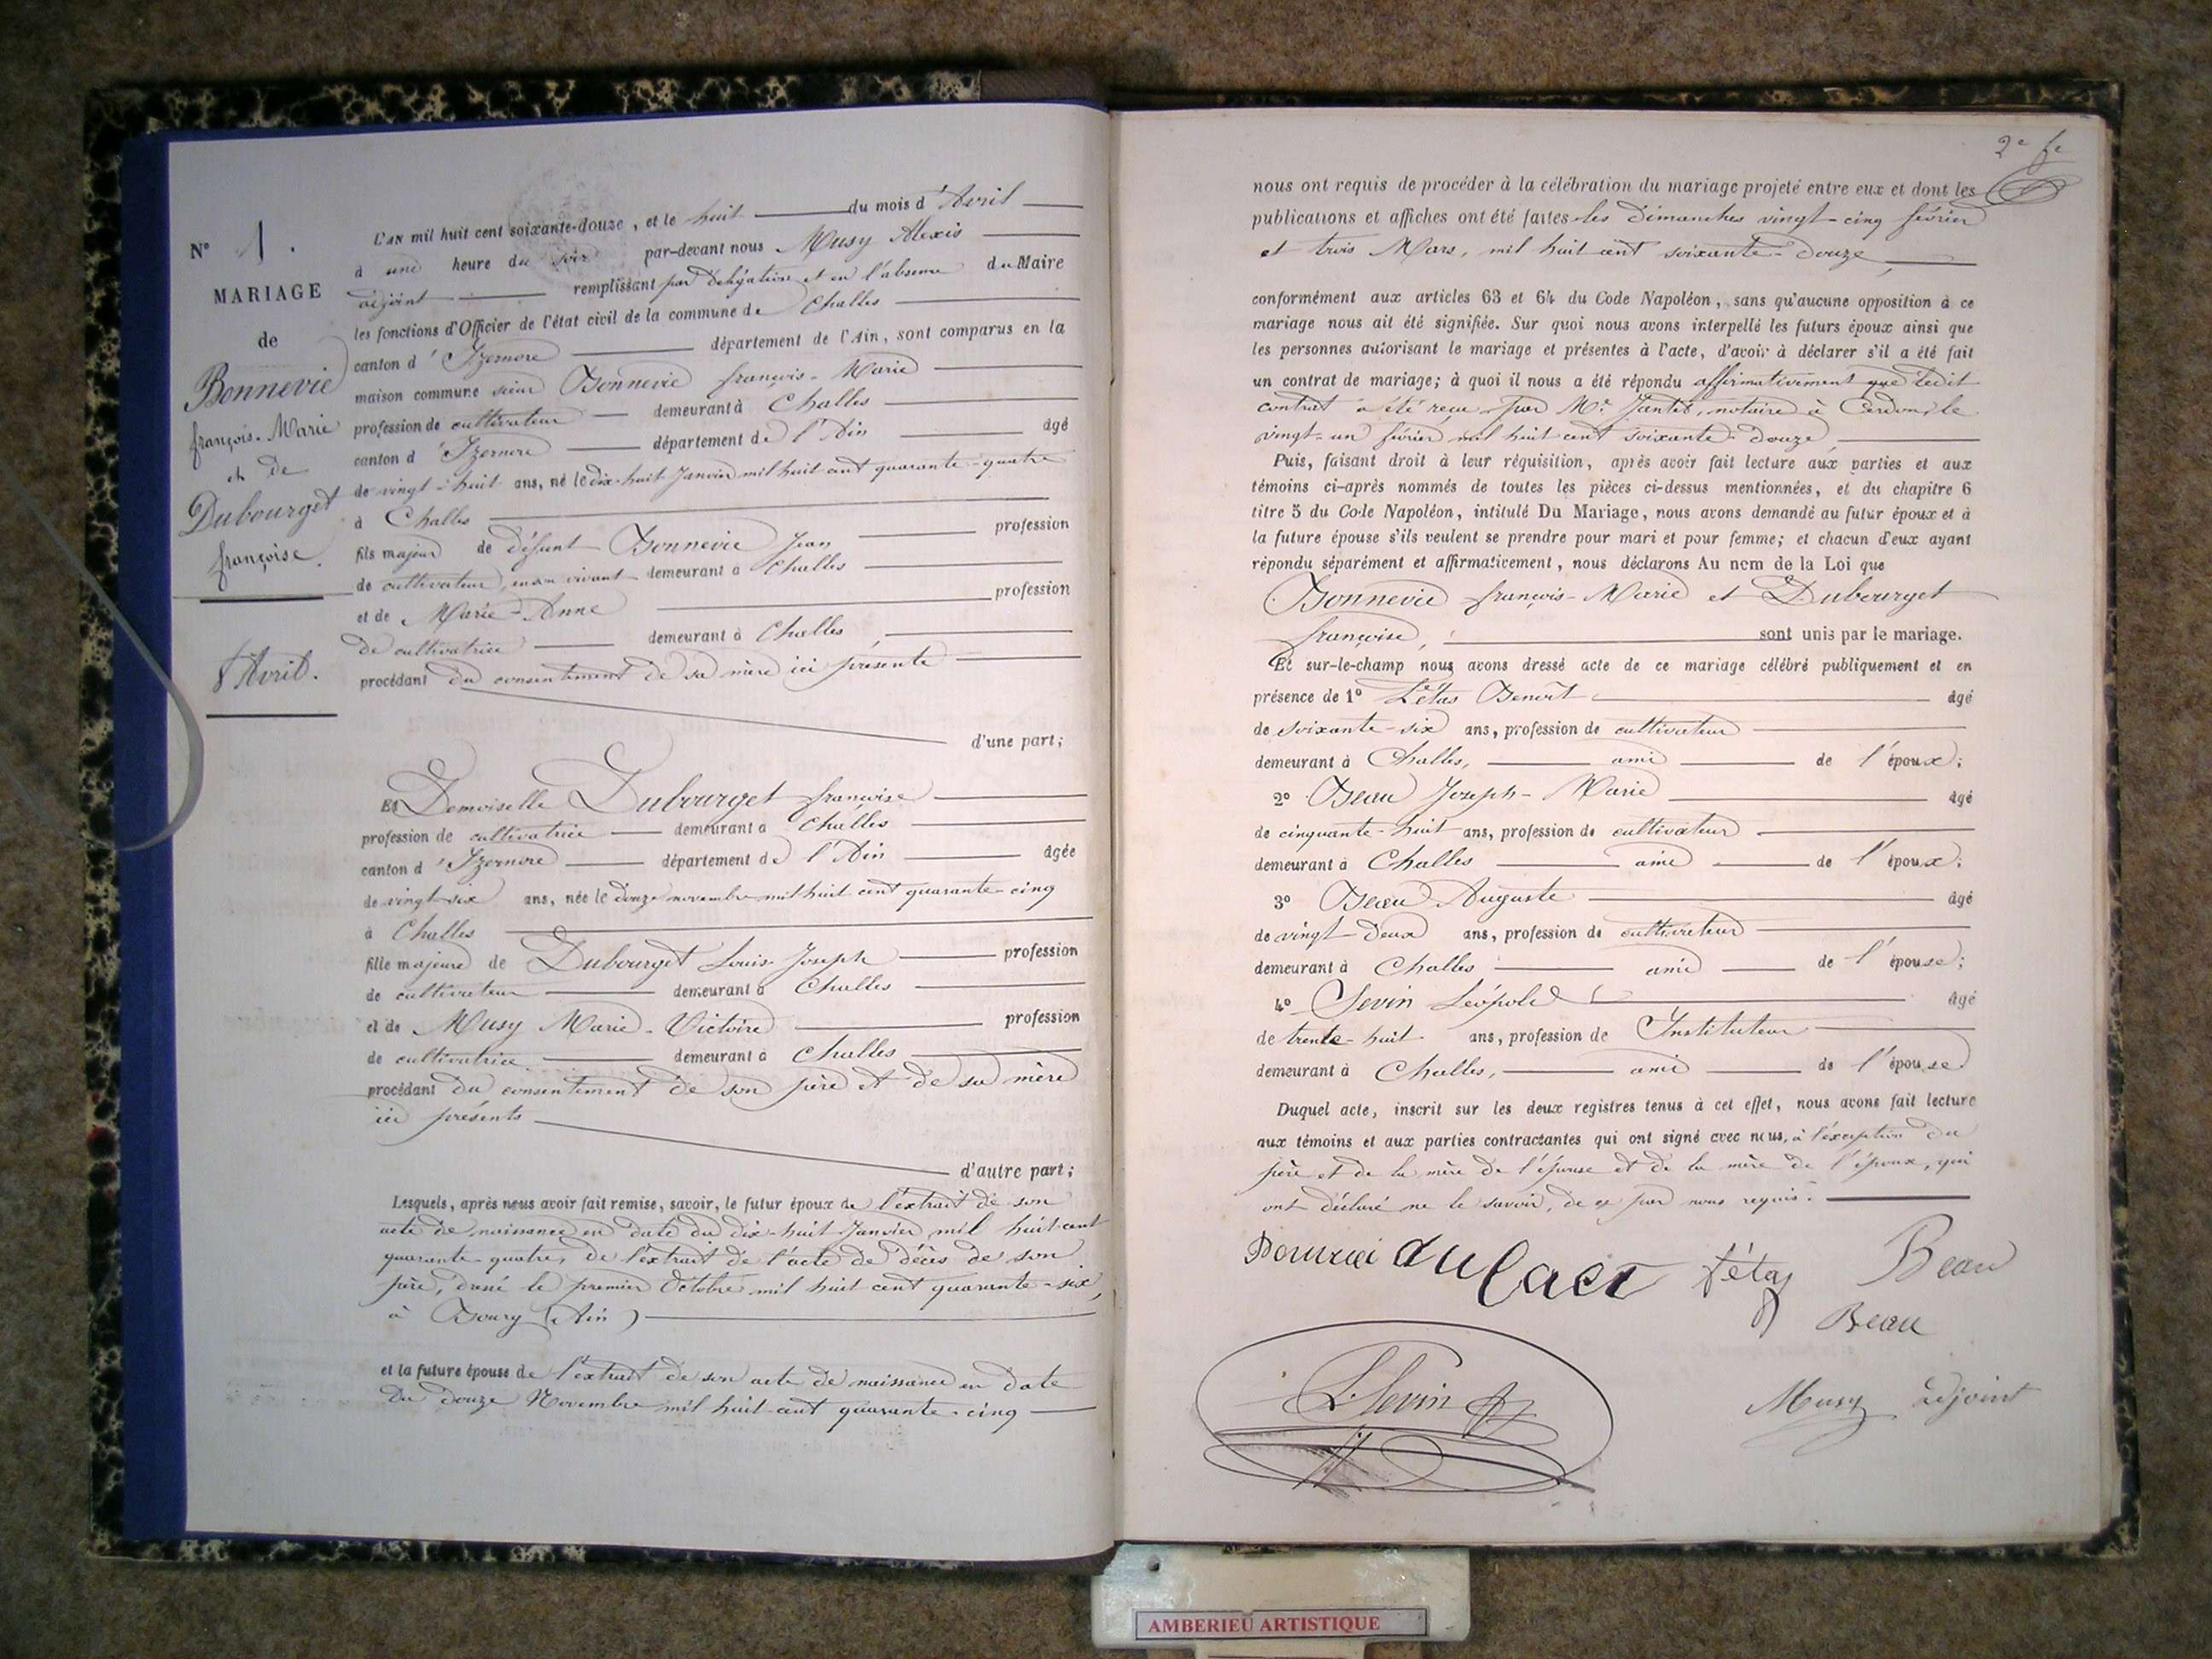 N° 1.
MARIAGE
de
Bonnevie
françois-Marie
et de
Dubourget
françoise.
8 Avril.
L'AN mil huit cent soixante-douze, et le huit du mois d'Avril
à une heure du soir par-devant nous Musy Alexis
adjoint remplissant par délégation et en l'absence du Maire
les fonctions d'Officier de l'état civil de la commune de Challes
canton d'Izernore département de l'Ain, sont comparus en la
maison commune sieur Bonnevie françois-Marie
profession de cultivateur demeurant à Challes
canton d'Izernore département de l'Ain âgé
de vingt-huit ans, né le dix-huit Janvier mil huit cent quarante-quatre
à Challes
fils majeur de défunt Bonnevie Jean profession
de cultivateur, en son vivant demeurant à Challes
et de Marie-Anne profession
de cultivatrice demeurant à Challes,
procédant du consentement de sa mère ici présente
d'une part;
Et Demoiselle Dubourget françoise
profession de cultivatrice demeurant à Challes
canton d'Izernore département de l'Ain âgée
de vingt-six ans, née le douze novembre mil huit cent quarante-cinq
à Challes
fille majeure de Dubourget Louis-Joseph profession
de cultivateur demeurant à Challes
et de Musy Marie-Victoire profession
de cultivatrice demeurant à Challes
procédant du consentement de son père et de sa mère
ici présents
d'autre part;
Lesquels, après nous avoir fait remise, savoir, le futur époux de l'extrait de son
acte de naissance en date du dix-huit Janvier mil huit cent
quarante-quatre, de l'extrait de l'acte de décès de son
père, dressé le premier Octobre mil huit cent quarante-six,
à Bourg (Ain)
et la future épouse de l'extrait de son acte de naissance en date
du douze Novembre mil huit cent quarante-cinq
2e fe
nous ont requis de procéder à la célébration du mariage projeté entre eux et dont les
publications et affiches ont été faites les dimanches vingt-cinq février
et trois Mars, mil huit cent soixante-douze,
conformément aux articles 63 et 64 du Code Napoléon, sans qu'aucune opposition à ce
mariage nous ait été signifiée. Sur quoi nous avons interpellé les futurs époux ainsi que
les personnes autorisant le mariage et présentes à l'acte, d'avoir à déclarer s'il a été fait
un contrat de mariage; à quoi il nous a été répondu affirmativement que ledit
contrat a été reçu par Me notaire à Cerdon, le
vingt-un février mil huit cent soixante-douze,
Puis, faisant droit à leur réquisition, après avoir fait lecture aux parties et aux
témoins ci-après nommés de toutes les pièces ci-dessus mentionnées, et du chapitre 6
titre 5 du Code Napoléon, intitulé Du Mariage, nous avons demandé au futur époux et à
la future épouse s'ils veulent se prendre pour mari et pour femme; et chacun d'eux ayant
répondu séparément et affirmativement, nous déclarons Au nom de la Loi que
Bonnevie françois-Marie et Dubourget
françoise, sont unis par le mariage.
Et sur-le-champ nous avons dressé acte de ce mariage célébré publiquement et en
présence de 1° Létas Benoît âgé
de soixante-six ans, profession de cultivateur
demeurant à Challes, ami de l'époux;
2° Beau Joseph-Marie âgé
de cinquante-huit ans, profession de cultivateur
demeurant à Challes ami de l'époux.
3° Beau Auguste âgé
de vingt-deux ans, profession de cultivateur
demeurant à Challes ami de l'épouse;
4° Sevin Léopold âgé
de trente-huit ans, profession de Instituteur
demeurant à Challes, ami de l'épouse
Duquel acte, inscrit sur les deux registres tenus à cet effet, nous avons fait lecture
aux témoins et aux parties contractantes qui ont signé avec nous, à l'exception du
père et de la mère de l'épouse et de la mère de l'époux, qui
ont déclaré ne le savoir, de ce par nous requis.
Létas Beau
Beau
L. Sevin
Musy adjoint
AMBERIEU ARTISTIQUE